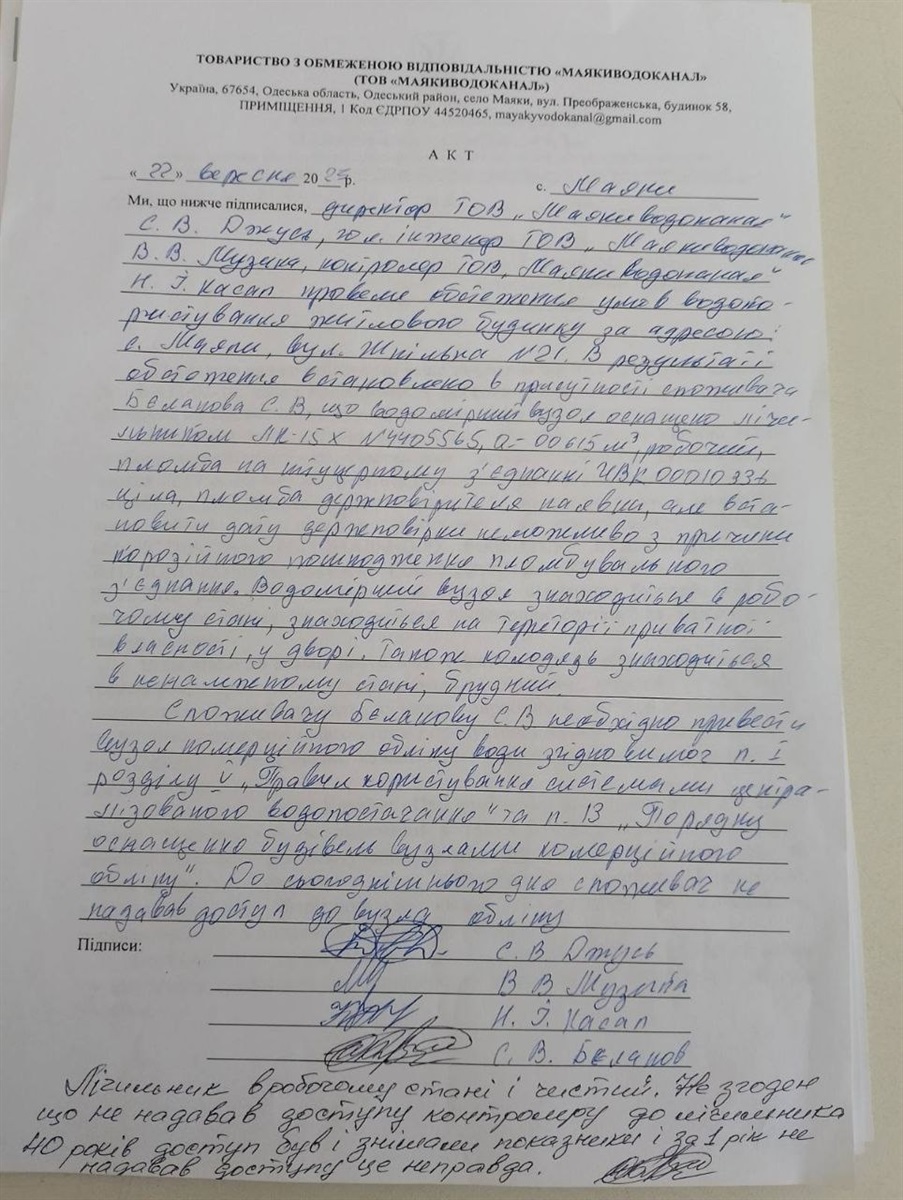 ТОВАРИСТВО З ОБМЕЖЕНОЮ ВІДПОВІДАЛЬНІСТЮ «МАЯКИВОДОКАНАЛ»
(ТОВ «МАЯКИВОДОКАНАЛ»)
Україна, 67654, Одеська область, Одеський район, село Маяки, вул. Преображенська, будинок 58,
ПРИМІЩЕННЯ, 1 Код ЄДРПОУ 44520465, mayakyvodokanal@gmail.com
А К Т
« 22 » вересня 20 р. с. Маяки
Ми, що нижче підписалися, директор ТОВ „Маякиводоканал"
С. В. Джусь, гол. інженер ТОВ „Маякиводоканал
В. В. Музика, контролер ТОВ „Маякиводоканал"
Н. І. Касап провели обстеження умов водоко-
ристування житлового будинку за адресою:
с. Маяки, вул. N21. В результаті
обстеження встановлено в присутності споживача
Бєланова С. В, що водомірний вузол оснащено лічи-
льником ЛК-15Х N4405565, а- 00615 м³, робочий,
пломба на штуцерному з'єднанні
ціла, пломба держповірителя наявна, але вста-
новити дату держповірки неможливо з причини
корозійного пошкодження пломбувального
з'єднання. Водомірний вузол знаходиться в робо-
чому стані, знаходиться на території приватної
власності, у дворі. Також колодязь знаходиться
в неналежному стані, брудний.
Споживачу Бєланову С. В необхідно привести
вузол комерційного обліку води згідно вимог п. I
розділу V „Правил користування системами центра-
лізованого водопостачання" та п. 13 „Порядку
оснащення будівель вузлами комерційного
обліку". До сьогоднішнього дня споживач не
надавав доступ до вузла обліку
Підписи:
С. В Джусь
В В Музика
Н. І. Касап
С. В. Бєланов
Лічильник в робочому стані і чистий. Не згоден
що не надавав доступу контролеру до лічильника
40 років доступ був і знімали показники і за 1 рік не
надавав доступу це неправда.